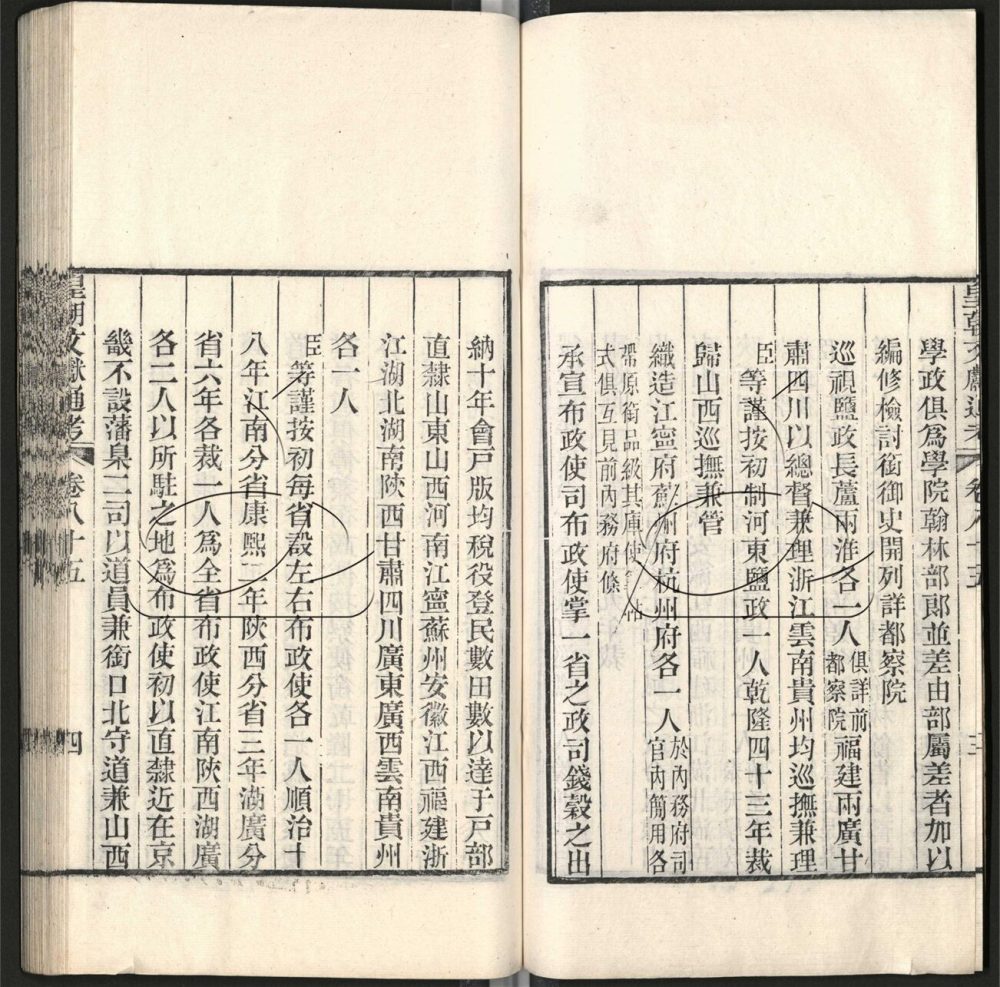 學政俱爲學院翰林部郞並差由部屬差者加以
編修檢討銜御史開列詳都察院
巡視鹽政長蘆兩淮各一人俱詳前都察院福建兩廣甘
肅四川以總督兼理浙江雲南貴州均巡撫兼理
臣等謹按初制河東鹽政一人乾隆四十三年裁
歸山西巡撫兼管
織造江寧府蘇州府杭州府各一人於內務府司官內簡用各
帶原銜品級其庫使筆帖式俱互見前內務府條
承宣布政使司布政使掌一省之政司錢穀之出
皇朝文獻通考 卷八十五 三
納十年會戸版均稅役登民數田數以達于戸部
直隸山東山西河南江寧蘇州安徽江西福建浙
江湖北湖南陝西甘肅四川廣東廣西雲南貴州
各一人
臣等謹按初每省設左右布政使各一人順治十
八年江南分省康熙二年陝西分省三年湖廣分
省六年各裁一人爲全省布政使江南陝西湖廣
各二人以所駐之地爲布政使初以直隸近在京
畿不設藩臬二司以道員兼銜口北守道兼山西
皇朝文獻通考 卷八十五 四